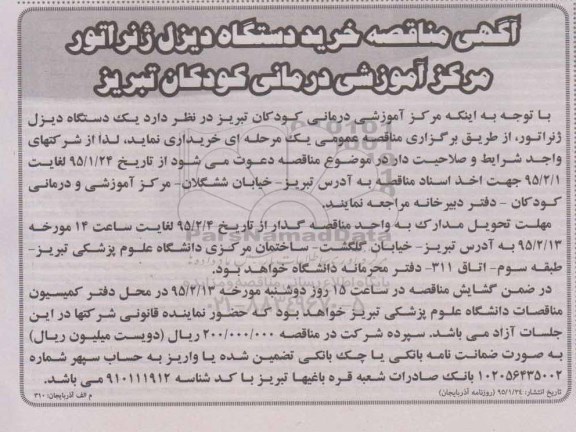 آگهی مناقصه خرید دستگاه دیزل ژنراتور
مرکز آموزشی درمانی کودکان تبریز
با توجه به اینکه مرکز آموزشی درمانی کودکان تبریز در نظر دارد یک دستگاه دیزل
ژنراتور، از طریق برگزاری مناقصه عمومی یک مرحله ای خریداری نماید، لذا از شرکتهای
واجد شرایط و صلاحیت دار در موضوع مناقصه دعوت می شود از تاریخ ۹۵/۱/۲۴ لغایت
۹۵/۲/۱ جهت اخذ اسناد مناقصه به آدرس تبریز- خیابان ششگلان- مرکز آموزشی و درمانی
کودکان - دفتر دبیرخانه مراجعه نمایند.
مهلت تحویل مدارک به واحد مناقصه گذار از تاریخ ۹۵/۲/۴ لغایت ساعت ۱۴ مورخه
۹۵/۲/۱۳ به آدرس تبریز- خیابان گلگشت- ساختمان مرکزی دانشگاه علوم پزشکی تبریز-
طبقه سوم- اتاق ۳۱۱- دفتر محرمانه دانشگاه خواهد بود.
در ضمن گشایش مناقصه در ساعت ۱۵ روز دوشنبه مورخه ۹۵/۲/۱۳ در محل دفتر کمیسیون
مناقصات دانشگاه علوم پزشکی تبریز خواهد بود که حضور نماینده قانونی شرکتها در این
جلسات آزاد می باشد. سپرده شرکت در مناقصه ۲۰۰/۰۰۰/۰۰۰ ریال (دویست میلیون ریال)
به صورت ضمانت نامه بانکی یا چک بانکی تضمین شده یا واریز به حساب سپهر شماره
۰۱۰۲۰۵۶۴۳۵۰۰۲ بانک صادرات شعبه قره باغیها تبریز با کد شناسه ۹۱۰۱۱۱۹۱۲ می باشد.
تاریخ انتشار: ۹۵/۱/۲۴ (روزنامه آذربایجان) م الف آذربایجان: ۳۱۰